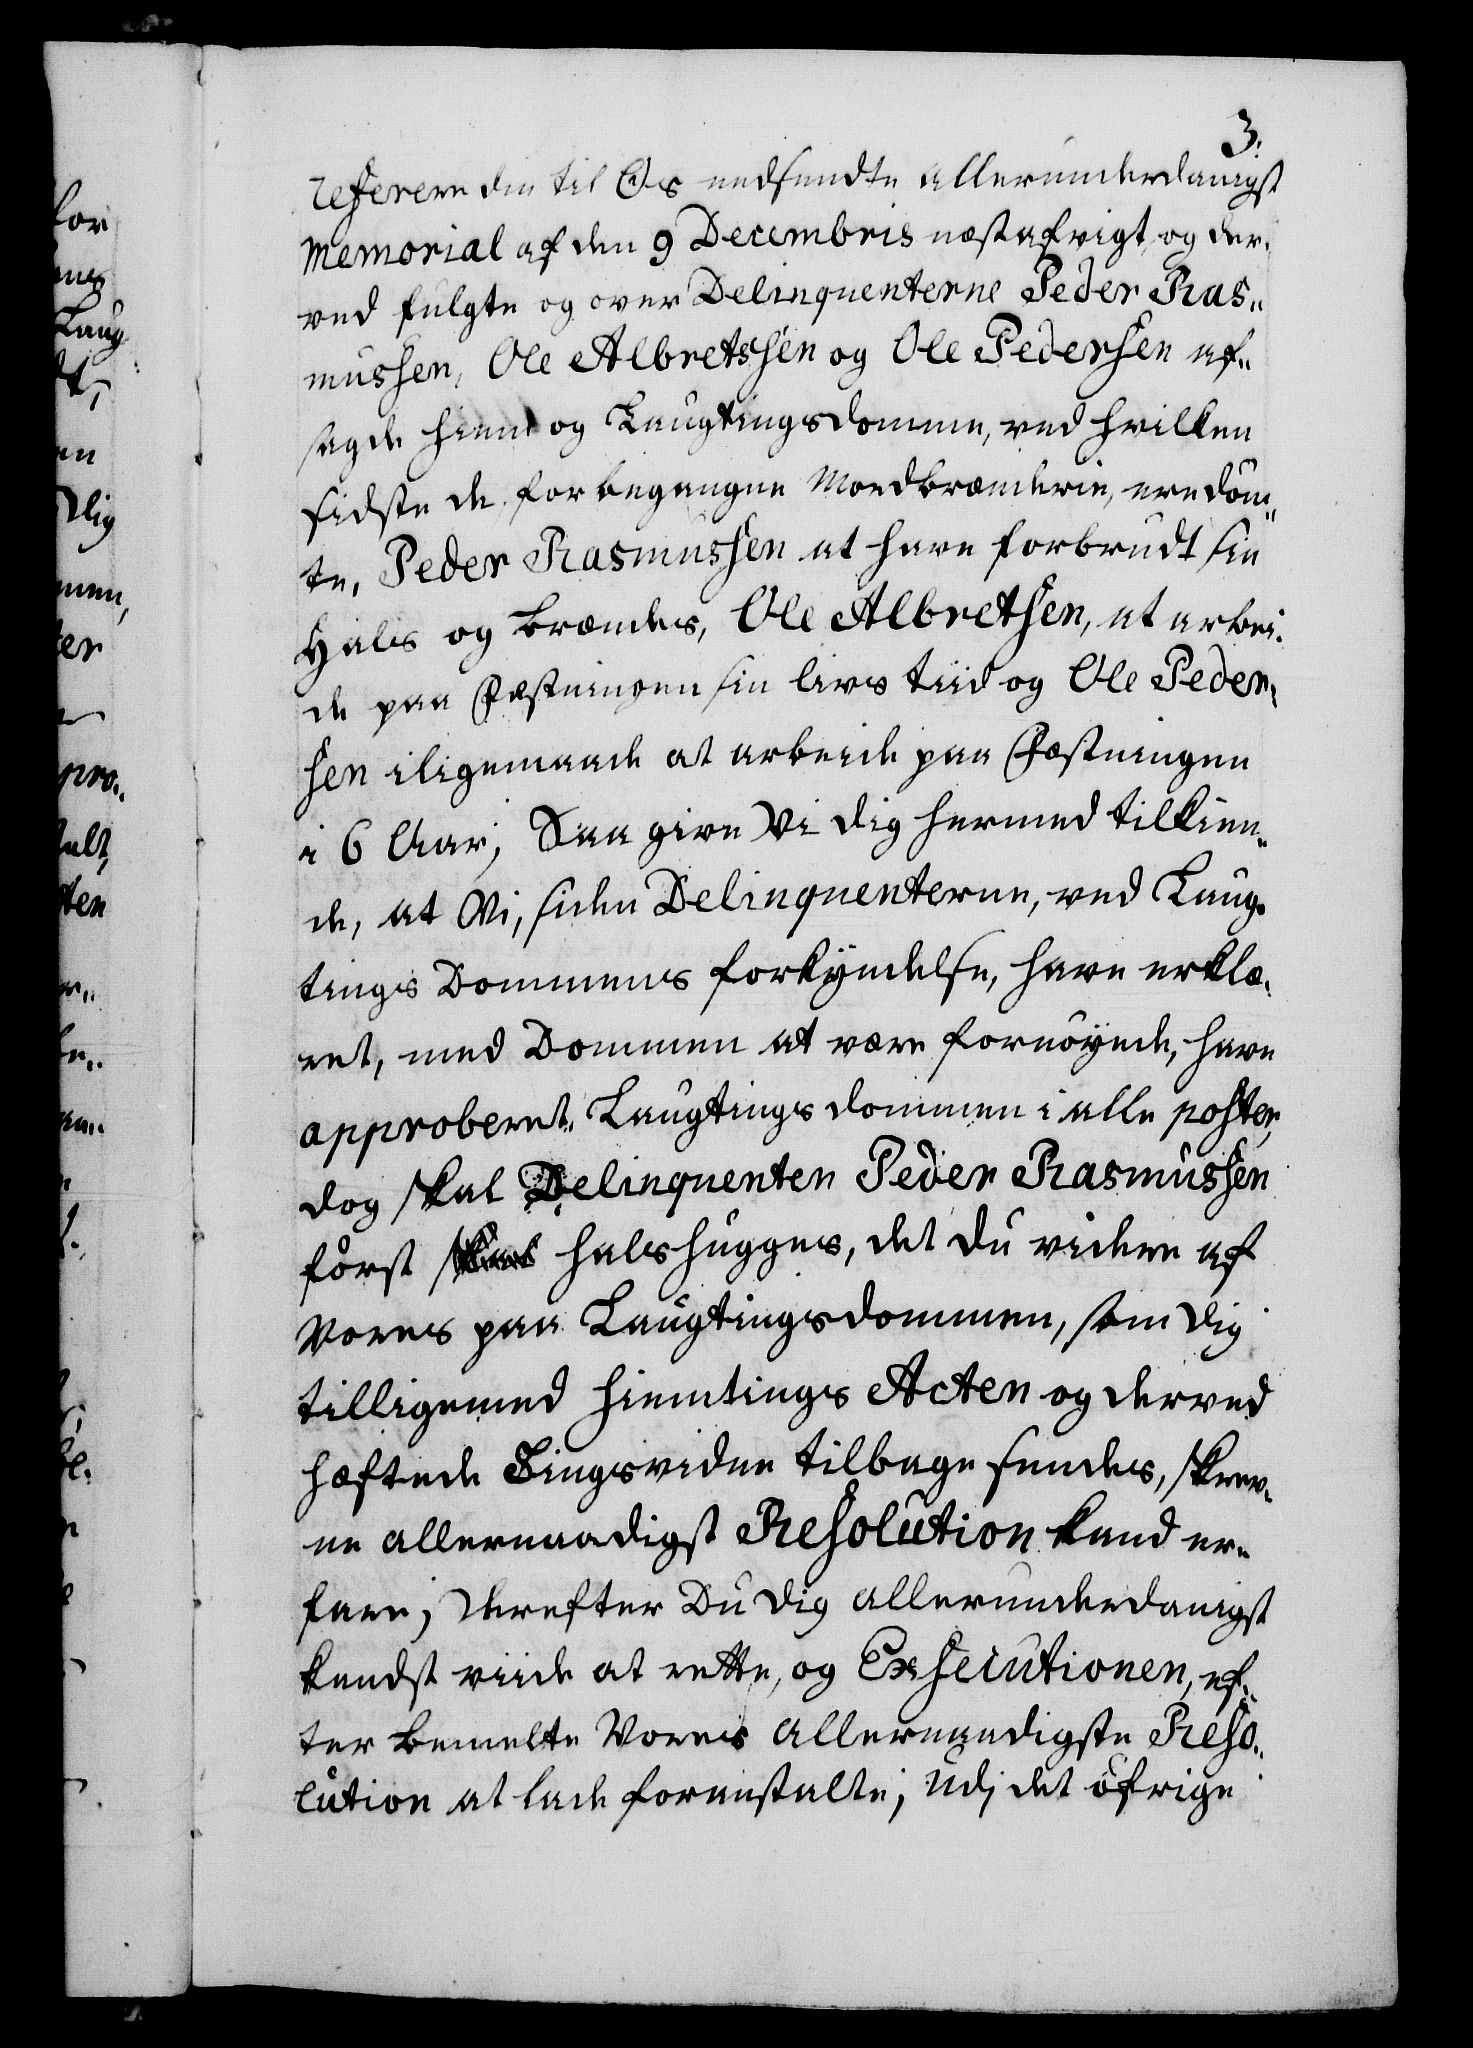 3.
referere din til Os nedsendte allerunderdanigst
Memorial af den 9 Decembris næstafvigt og der-
ved fulgte og over Delinquenterne Peder Ras-
mussen, Ole Albretssen og Ole Pedersen af-
sagde Hiem og Laugtingsdomme, ved hvilken
sidste de for begangne Mordbrænderie, ere döm-
te, Peder Rasmussen at have forbrudt sin
Hals og brændes, Ole Albretsen, at arbei-
de paa Fæstningen sin livs tiid og Ole Peder-
sen iligemaade at arbeide paa Fæstningen
i 6 Aar; Saa give Vi dig hermed tilkien-
de, at Vi, siden Delinquenterne, ved Laug-
tings Dommens forkyndelse, have erklæ-
ret, med Dommen at være fornöyede, have
approberet Laugtingsdommen i alle poster,
dog skal Delinquenten Peder Rasmussen
först skal halshugges, det du videre af
Vores paa Laugtingsdommen, som dig
tilligemed Hiemtings Acten og derved
hæftede Tingsvidne tilbage sendes, skrev-
ne allernaadigst Resolution kand er-
fare; Derefter Du dig allerunderdanigst
kandst viide at rette, og Exsecutionen, ef-
ter bemelte Vores allernaadigste Reso-
lution at lade foranstalte; Udj det öfrige